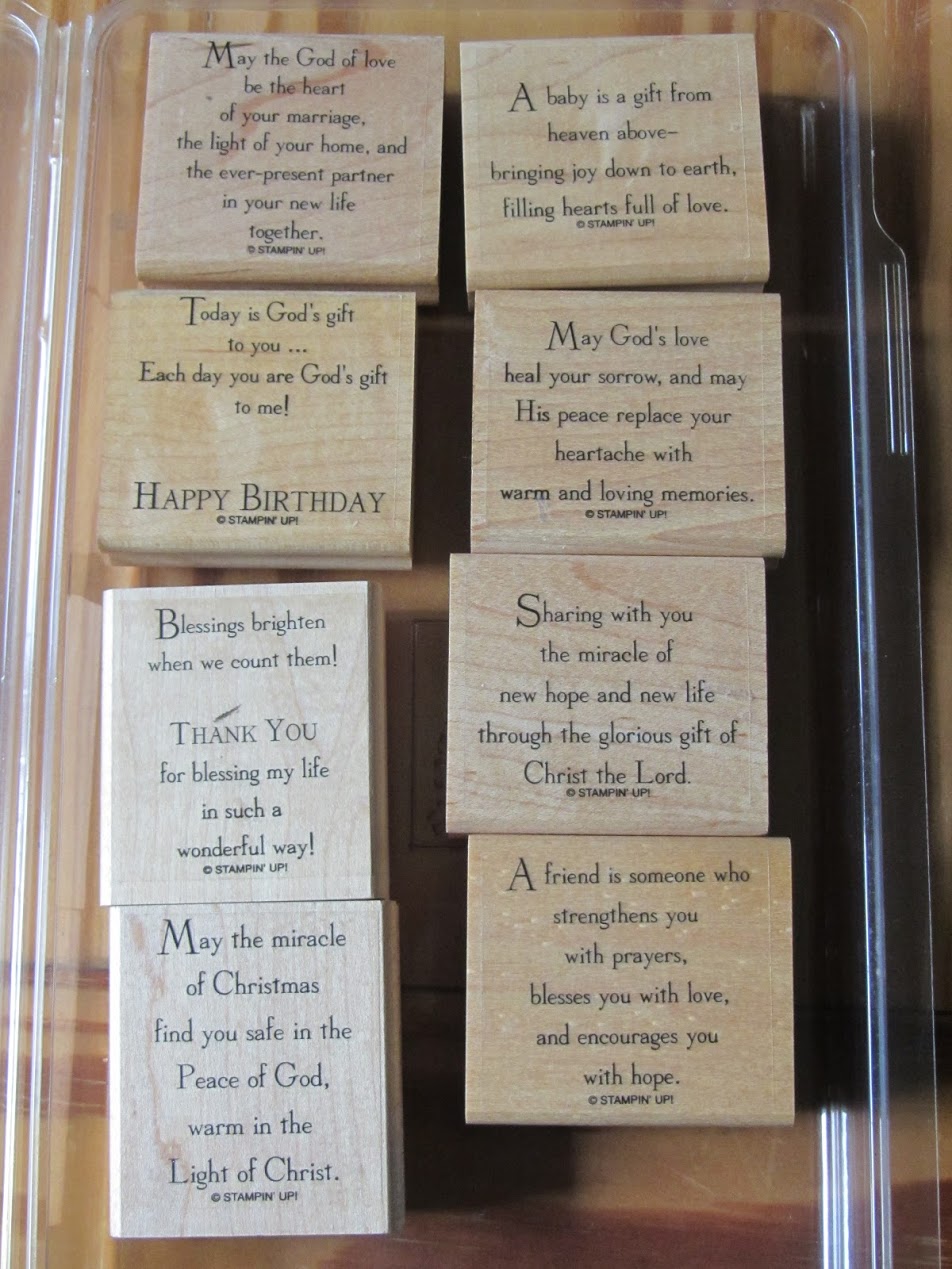 May the God of love
be the heart
of your marriage,
the light of your home, and
the ever-present partner
in your new life
together.
© STAMPIN' UP!
A baby is a gift from
heaven above–
bringing joy down to earth,
filling hearts full of love.
© STAMPIN' UP!
Today is God's gift
to you ...
Each day you are God's gift
to me!
HAPPY BIRTHDAY
© STAMPIN' UP!
May God's love
heal your sorrow, and may
His peace replace your
heartache with
warm and loving memories.
© STAMPIN' UP!
Blessings brighten
when we count them!
THANK YOU
for blessing my life
in such a
wonderful way!
© STAMPIN' UP!
Sharing with you
the miracle of
new hope and new life
through the glorious gift of
Christ the Lord.
© STAMPIN' UP!
May the miracle
of Christmas
find you safe in the
Peace of God,
warm in the
Light of Christ.
© STAMPIN' UP!
A friend is someone who
strengthens you
with prayers,
blesses you with love,
and encourages you
with hope.
© STAMPIN' UP!